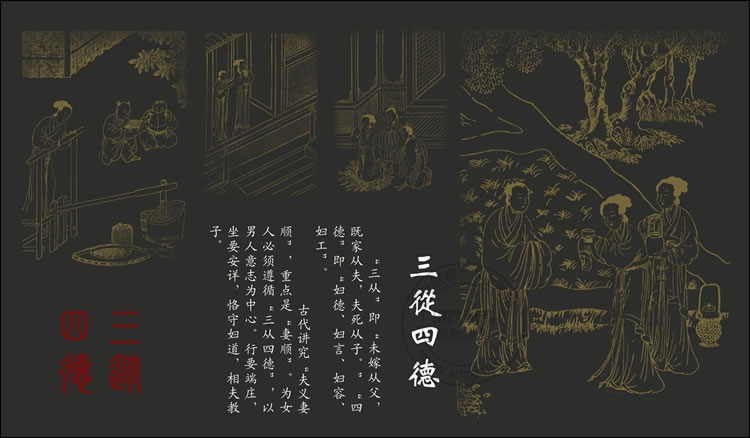 三從四德
“三从”即“未嫁从父，
既家从夫，夫死从子。”“四
德”即“妇德、妇言、妇容、
妇工”。
古代讲究“夫义妻
顺”，重点是“妻顺”。为女
人必须遵循“三从四德”，以
男人意志为中心。行要端庄，
坐要安详，恪守妇道，相夫教
子。
三從
四德